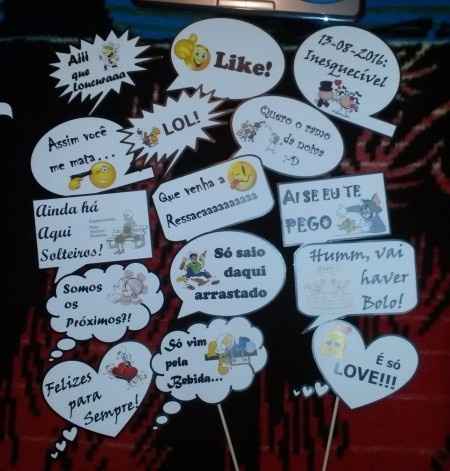 Aiii
que
Loucuraaa
Like!
13-08-2016:
Inesquecível
Assim você
me mata...
LOL!
Quero o ramo
da noiva
:-D
Ainda há
Aqui
Solteiros!
Que venha a
Ressacaaaaaaaaaa
AI SE EU TE
PEGO
Somos
os
Próximos?!
Só saio
daqui
arrastado
Humm, vai
haver
Bolo!
Felizes
para
Sempre!
Só vim
pela
Bebida...
É só
LOVE!!!